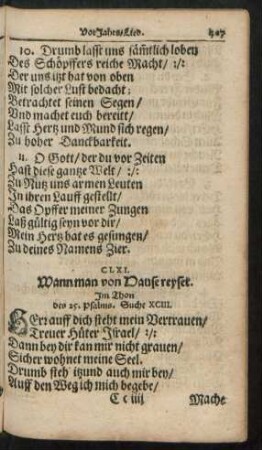 VorJahrs/Lied.
10. Drumb lasst uns sämtlich loben
Des Schöpffers reiche Macht/ :/:
Der uns itzt hat von oben
Mit solcher Lust bedacht:
Betrachtet seinen Segen/
Und machet euch bereitt/
Lasst Hertz und Mund sich regen/
Zu hoher Danckbarkeit.
11. O Gott/ der du vor Zeiten
Hast diese gantze Welt/ :/:
Zu Nutz uns armen Leuten
In ihren Lauff gestellt/
Das Opffer meiner Zungen
Laß gültig seyn vor dir/
Mein Hertz hat es gesungen/
Zu deines Namens Zier.
CLXI.
Wann man von Hause reyset.
Im Thon
des 25. Psalms. Suche XCIII.
HErr auff dich steht mein Vertrauen/
Treuer Hüter Israel/ :/:
Dann bey dir kan mir nicht grauen/
Sicher wohnet meine Seel.
Drumb steh itzund auch mir bey/
Auff den Weg ich mich begebe/
Cc iiij Mache